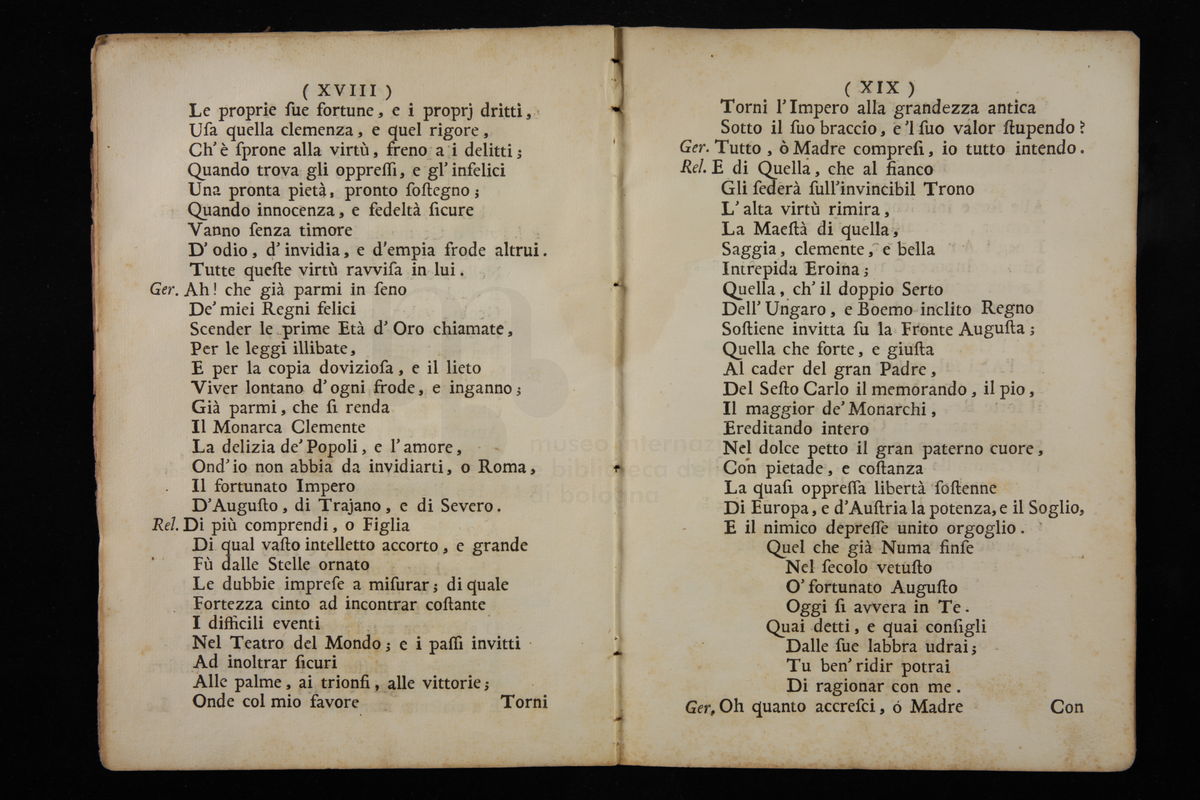 ( XVIII )
Le proprie ſue fortune, e i proprj dritti,
Uſa quella clemenza, e quel rigore,
Ch' è ſprone alla virtù, freno a i delitti;
Quando trova gli oppreſſi, e gl' infelici
Una pronta pietà, pronto ſoſtegno;
Quando innocenza, e fedeltà ſicure
Vanno ſenza timore
D' odio, d' invidia, e d'empia frode altrui.
Tutte queſte virtù ravviſa in lui.
Ger. Ah! che già parmi in ſeno
De' miei Regni felici
Scender le prime Età d' Oro chiamate,
Per le leggi illibate,
E per la copia dovizioſa, e il lieto
Viver lontano d' ogni frode, e inganno;
Già parmi, che ſi renda
Il Monarca Clemente
La delizia de' Popoli, e l' amore,
Ond' io non abbia da invidiarti, o Roma,
Il fortunato Impero
D' Auguſto, di Trajano, e di Severo.
Rel. Di più comprendi, o Figlia
Di qual vaſto intelletto accorto, e grande
Fù dalle Stelle ornato
Le dubbie impreſe a miſurar; di quale
Fortezza cinto ad incontrar coſtante
I difficili eventi
Nel Teatro del Mondo; e i paſſi invitti
Ad inoltrar ſicuri
Alle palme, ai trionfi, alle vittorie;
Onde col mio favore
Torni
( XIX )
Torni l' Impero alla grandezza antica
Sotto il ſuo braccio, e 'l ſuo valor ſtupendo?
Ger. Tutto, ò Madre compreſi, io tutto intendo.
Rel. E di Quella, che al fianco
Gli ſederà ſull'invincibil Trono
L' alta virtù rimira,
La Maeſtà di quella,
Saggia, clemente, e bella
Intrepida Eroina;
Quella, ch' il doppio Serto
Dell' Ungaro, e Boemo inclito Regno
Soſtiene invitta ſu la Fronte Auguſta;
Quella che forte, e giuſta
Al cader del gran Padre,
Del Seſto Carlo il memorando, il pio,
Il maggior de' Monarchi,
Ereditando intero
Nel dolce petto il gran paterno cuore,
Con pietade, e coſtanza
La quaſi oppreſſa libertà ſoſtenne
Di Europa, e d'Auſtria la potenza, e il Soglio,
E il nimico depreſſe unito orgoglio.
Quel che già Numa finſe
Nel ſecolo vetuſto
O' fortunato Auguſto
Oggi ſi avvera in Te.
Quai detti, e quai conſigli
Dalle ſue labbra udrai;
Tu ben' ridir potrai
Di ragionar con me.
Ger. Oh quanto accreſci, ó Madre
Con